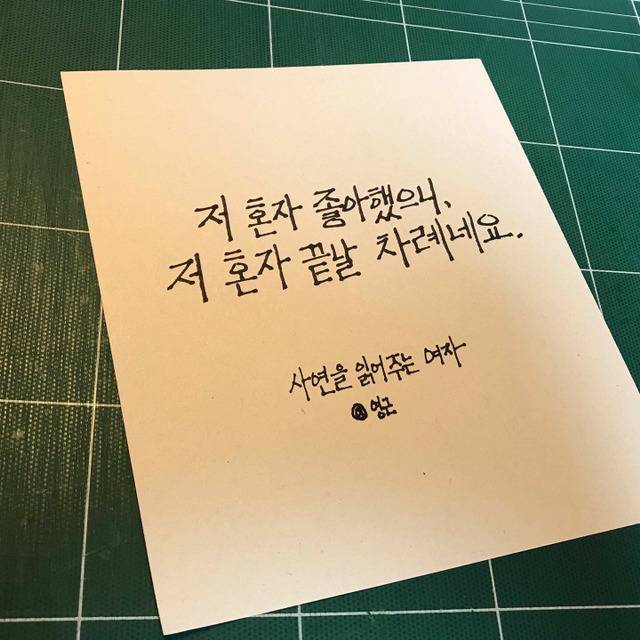 저 혼자 좋아했으니,
저 혼자 끝날 차례네요.
사연을 읽어주는 여자
영근